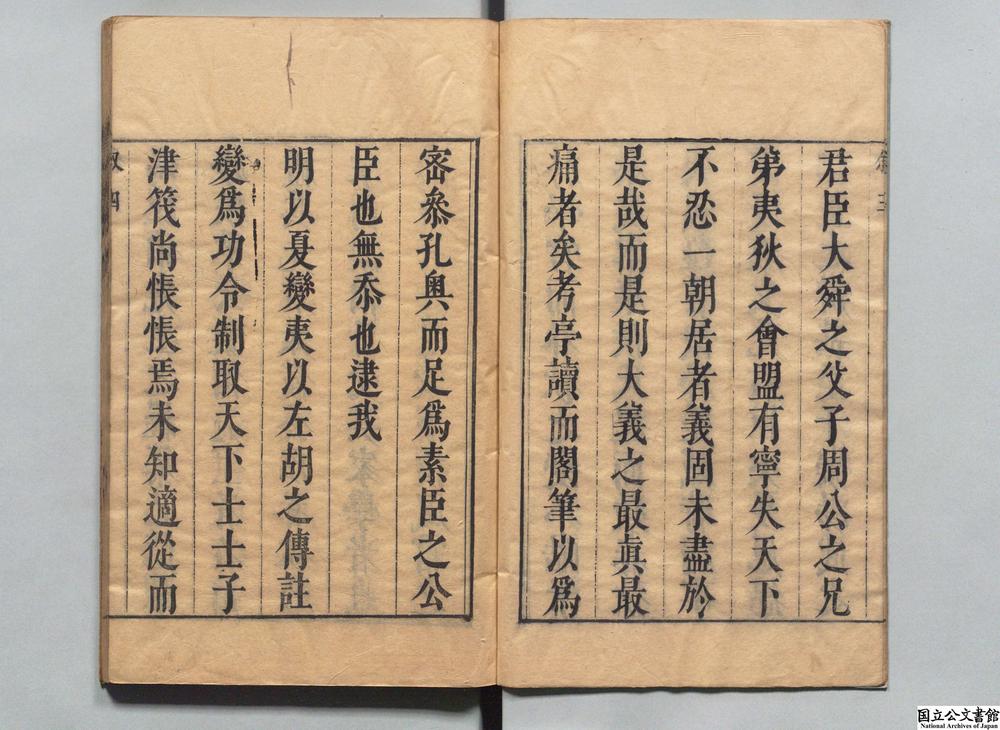 君臣大舜之父子周公之兄
弟夷狄之會盟有寧失天下
不忍一朝居者義固未盡於
是哉而是則大義之最眞最
痛者矣考亭讀而閣筆以爲
密叅孔奧而足爲素臣之公
臣也無忝也逮我
明以夏變夷以左胡之傳註
變爲功令制取天下士士子
津筏尚悵悵焉未知適從而
国立公文書館
National Archives of Japan